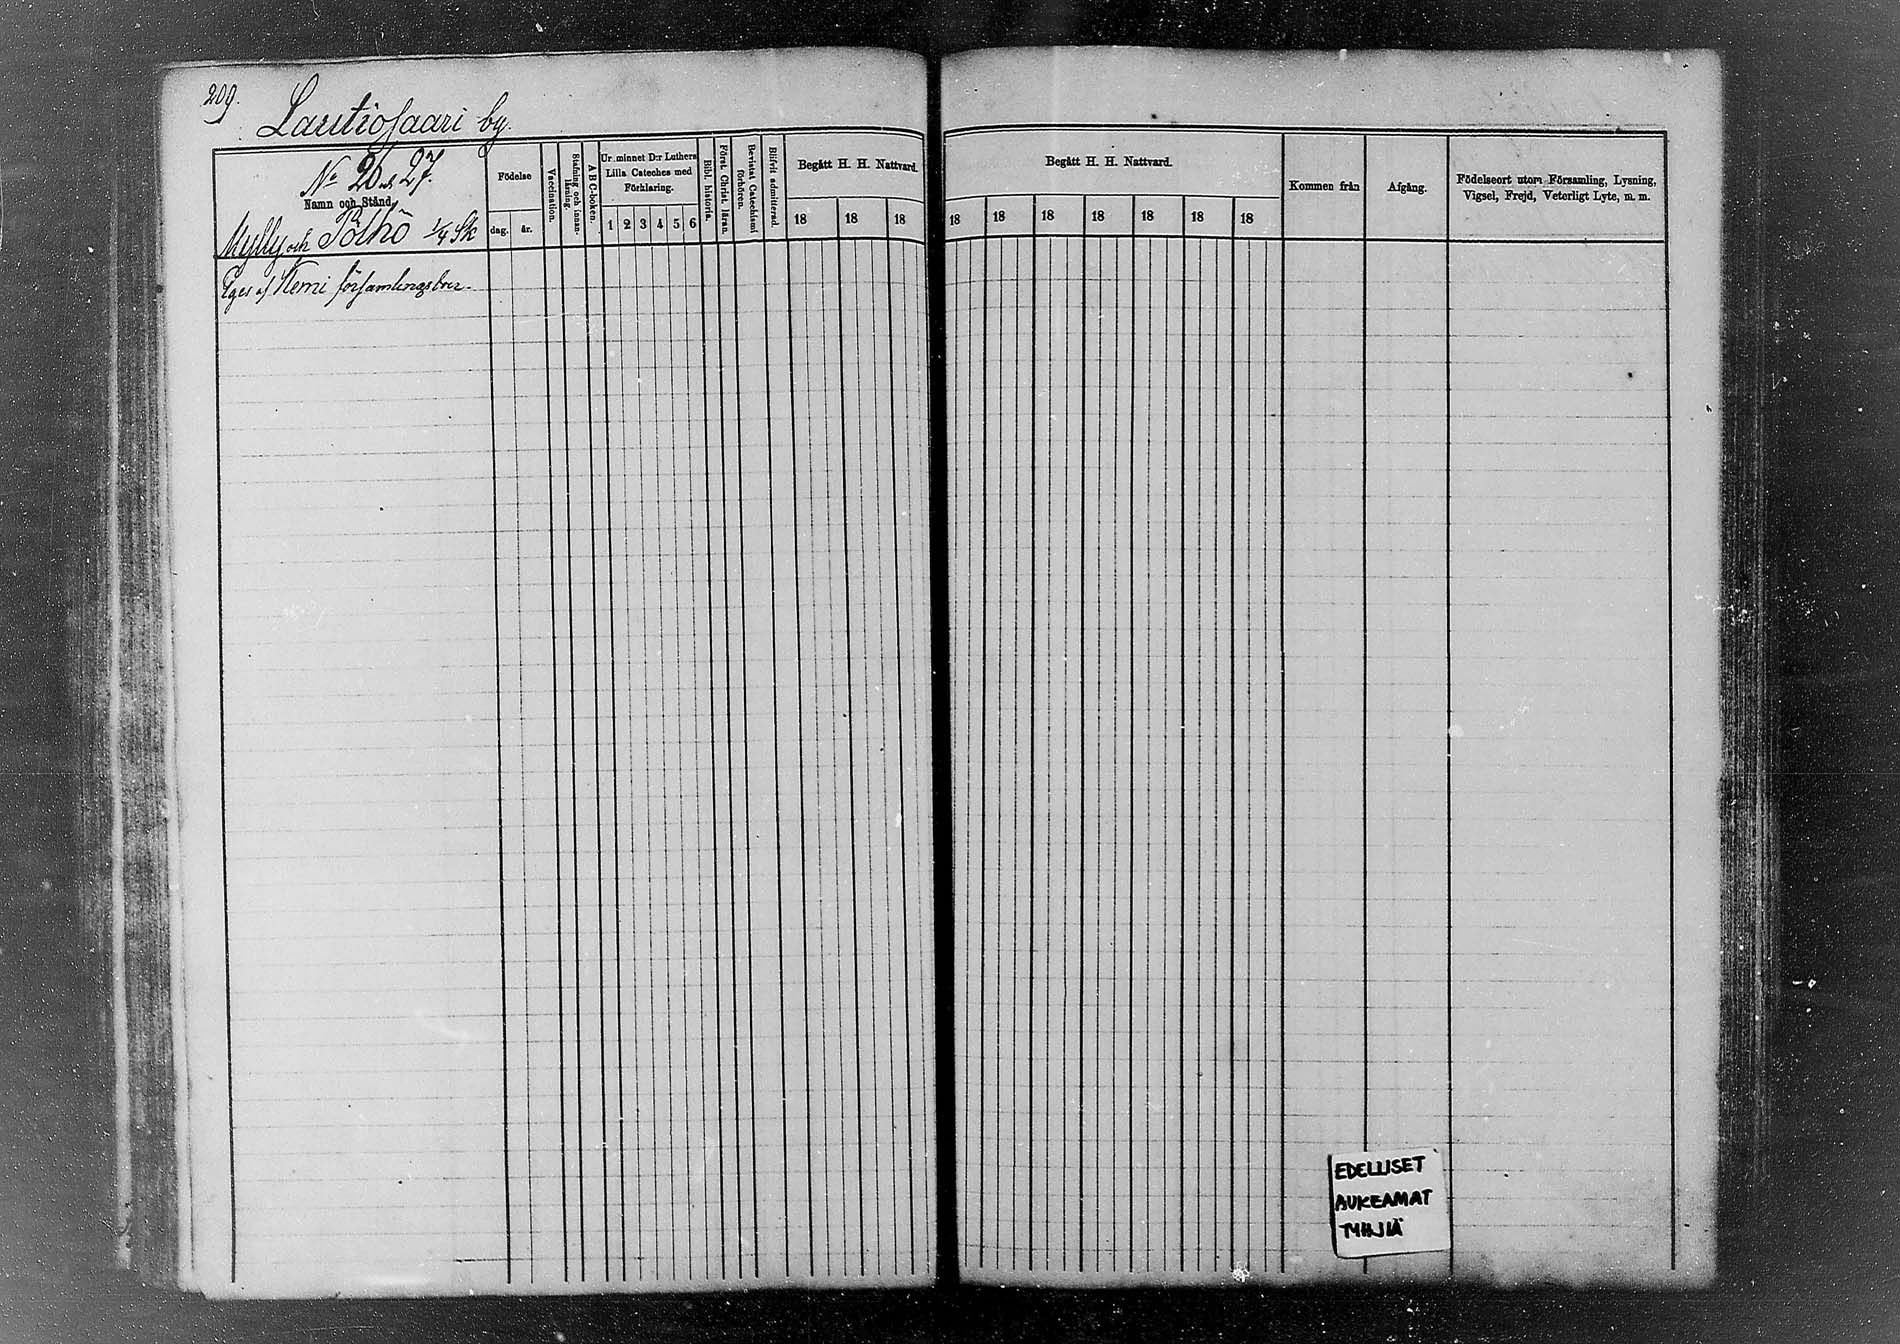 209.
Lautiosaari by.
No 26 och 27.
Namn och Stånd.
Mylly och Pölhö 1/4 Sk
Eges af Kemi församlingsbor.
Födelse
dag. år.
Vaccination.
Stafning och innan-
läsning.
A B C-boken.
Ur minnet D:r Luthers
Lilla Cateches med
Förklaring.
1 2 3 4 5 6
Bibl. historia.
Först. Christ. läran.
Bevistat Catechismi
förhören.
Blifvit admitterad.
Begått H. H. Nattvard.
18 18 18
Begått H. H. Nattvard.
18 18 18 18 18 18 18
Kommen från
Afgång.
Födelseort utom Församling, Lysning,
Vigsel, Frejd, Veterligt Lyte, m. m.
EDELLISET
AUKEAMAT
TYHJIÄ